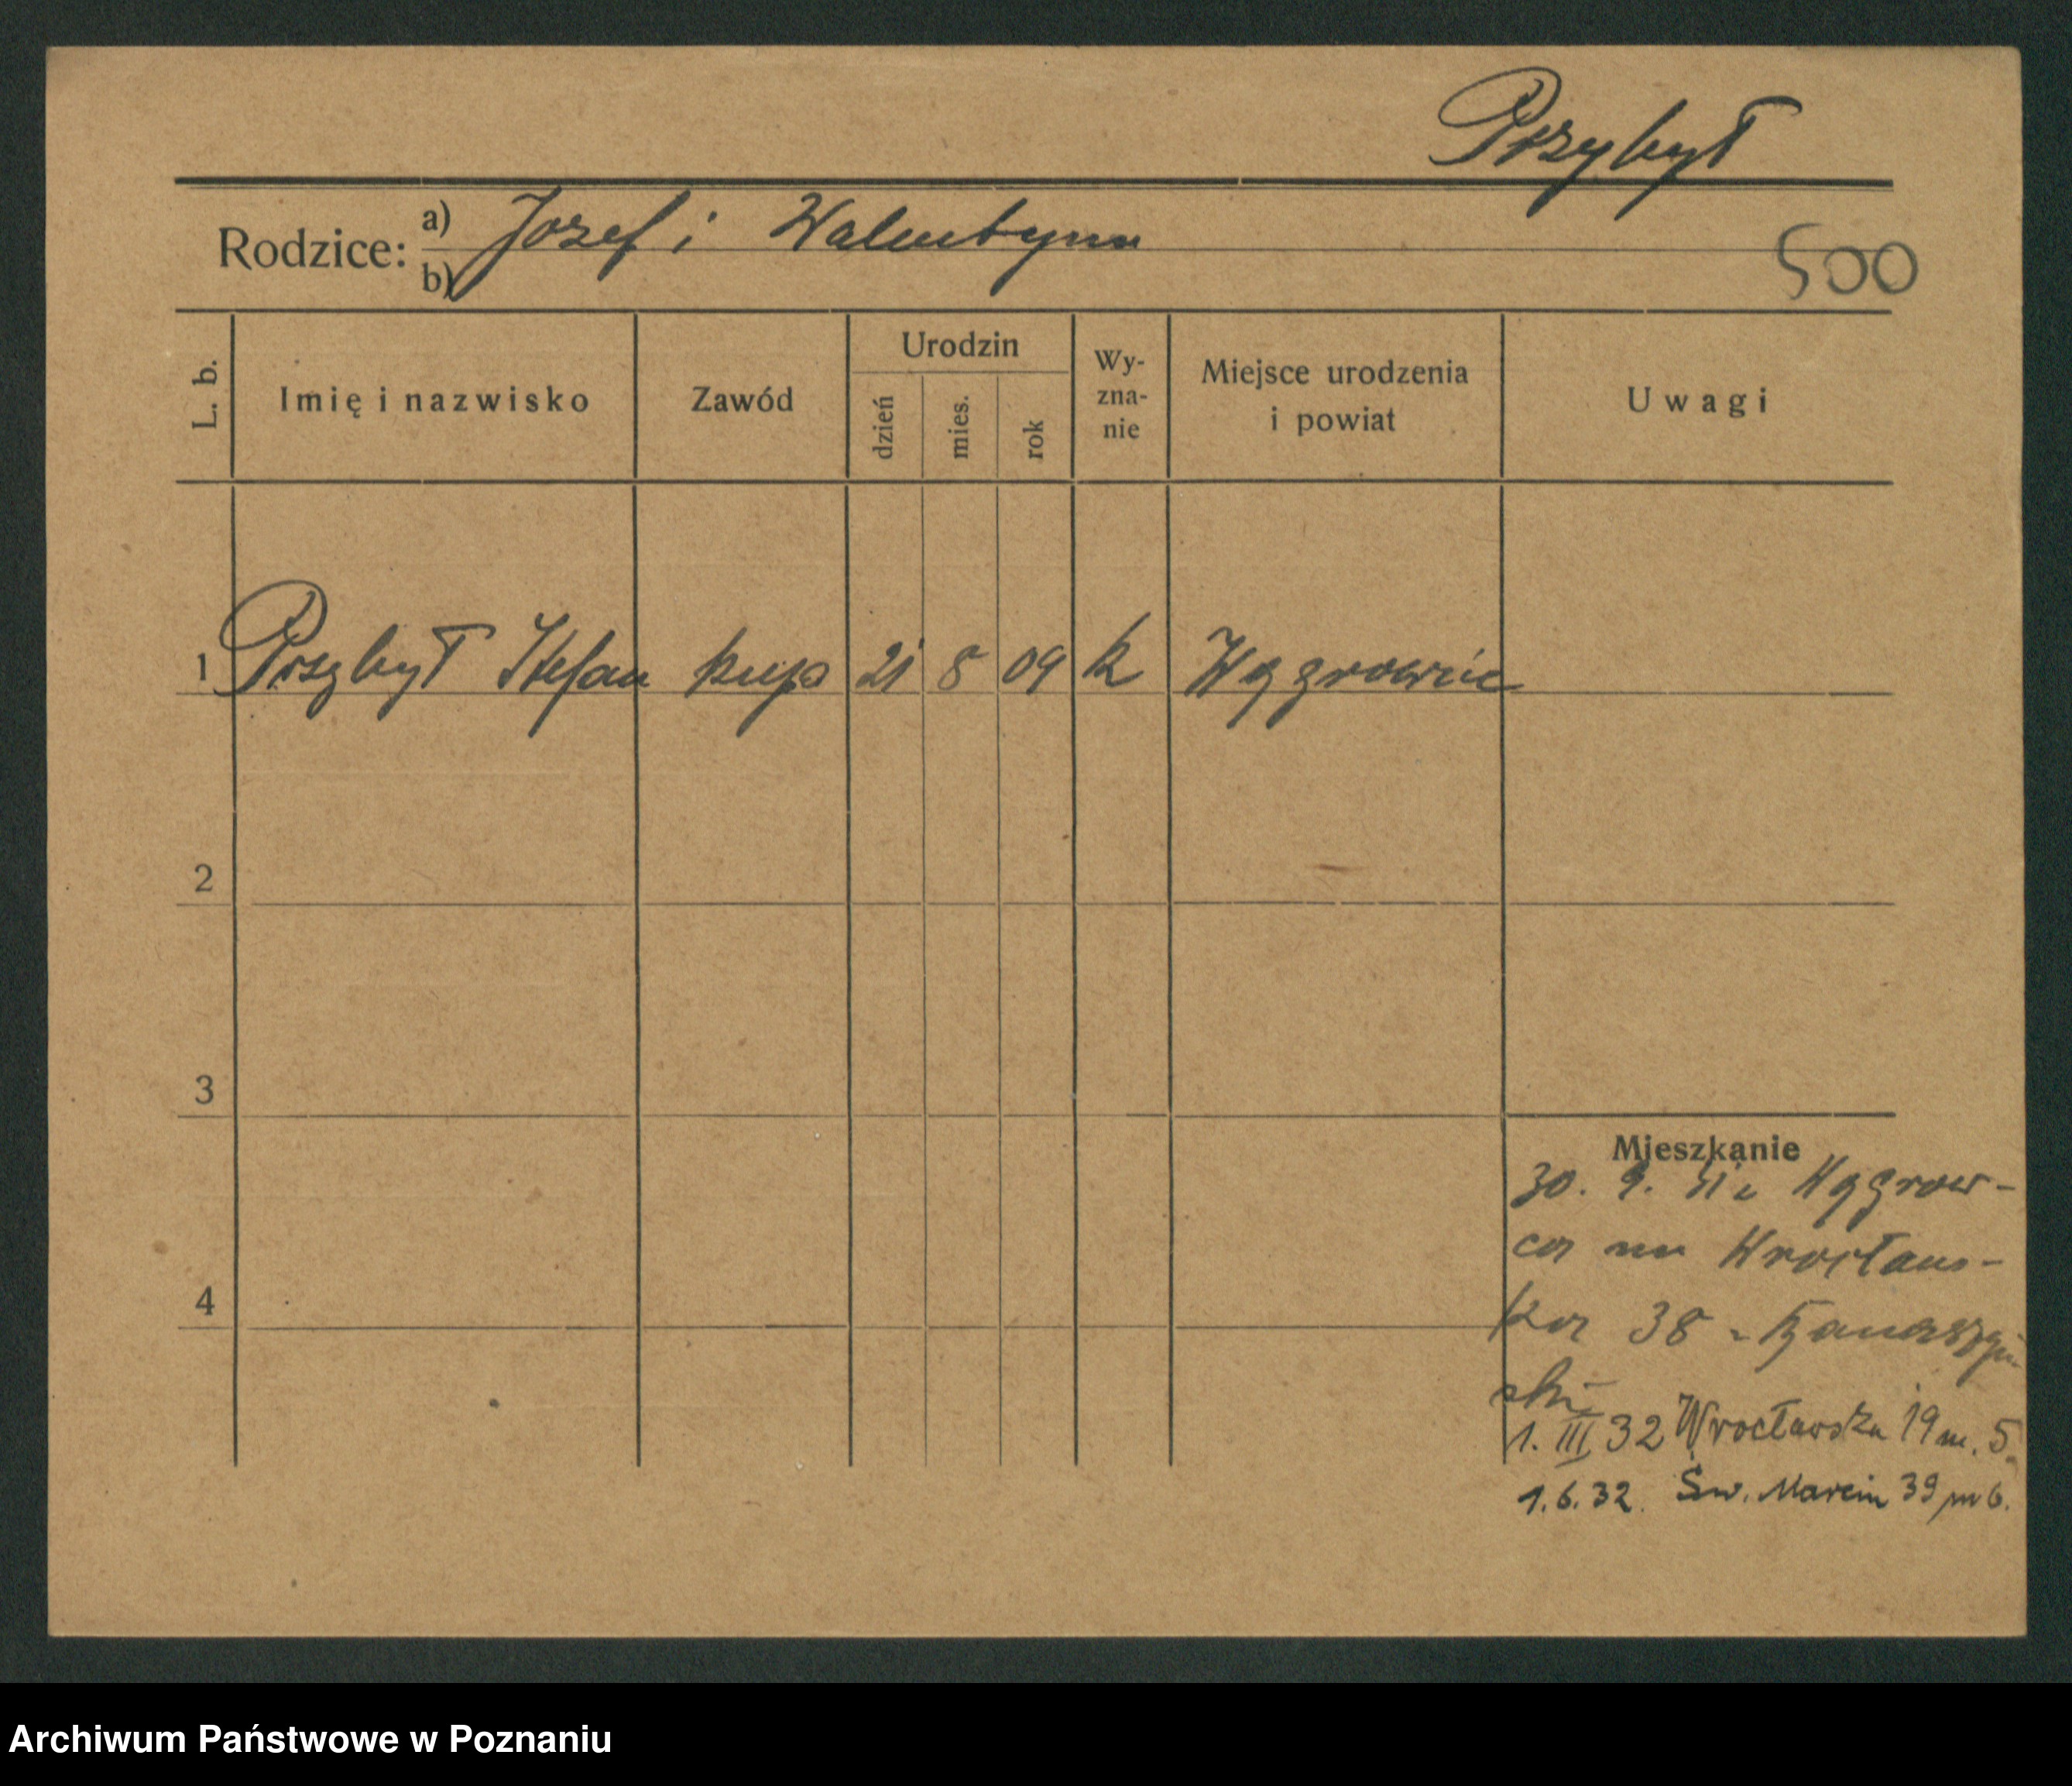 Przybył
Rodzice: a) Jozef i Walentyna
b)
500
L. b. Imię i nazwisko Zawód Urodzin dzień mies. rok Wy-zna-nie Miejsce urodzenia i powiat Uwagi
1 Przybył Stefan kup 21 8 09 k Wągrowiec
2
3
4
Mieszkanie
30. 9. 31 z Wągrow-
ca na Wrocławs-
ka 38
ski
1. III 32 Wrocławska 19 m. 5.
1. 6. 32. Św. Marcin 39 m 6.
Archiwum Państwowe w Poznaniu